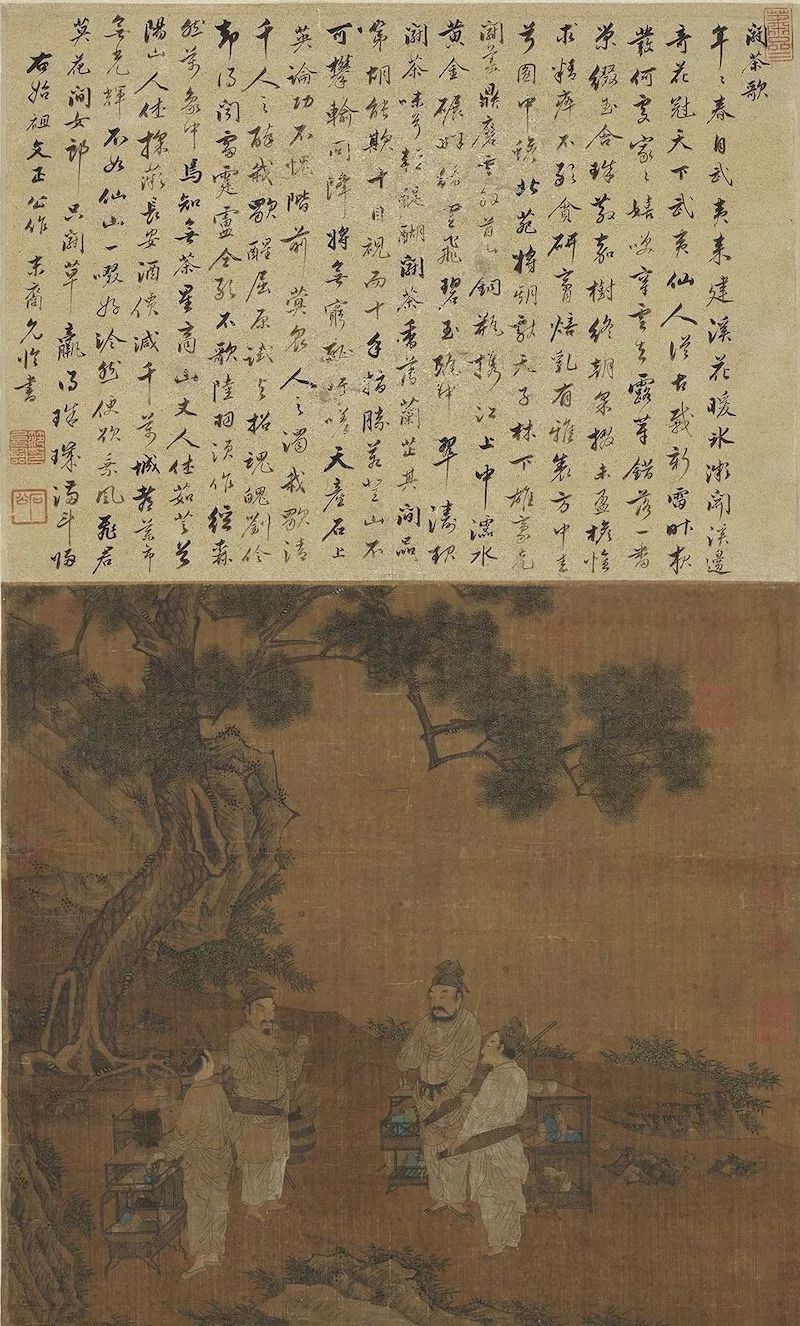 鬪茶歌
年〻春自武夷来建溪花暖氷漸開溪邊
奇花冠天下武夷仙人從古栽新雷昨夜
發何處家〻嬉唉穿雲去露芽錯落一番
榮綴玉含珠散嘉樹終朝采掇未盈襜惟
求精粹不敢貪研膏焙乳有雅製方中圭
兮圓中蟾北苑將期獻天子林下雄豪先
鬪美鼎磨雲外首山銅瓶携江上中濡水
黃金碾畔緑雲飛碧玉甌中翠濤起
鬪茶味兮輕醍醐鬪茶香薄蘭芷其間品
第胡能欺十目視而十手指勝若登山不
可攀輸同降將無窮恥吁嗟天產石上
英論功不愧階前蓂衆人之濁我歌清
千人之醉我歌醒屈原試與招魂魄劉伶
却得聞雷霆盧仝敢不歌陸羽須作經森
然萬象中焉知無茶星商山丈人休茹芝首
陽山人休採薇長安酒價減千萬城都藥市
無光輝不如仙山一啜好泠然便欲乘風飛君
莫花間女郎只鬪草贏得珠璣滿斗歸
右始祖文正公作末裔允臨書